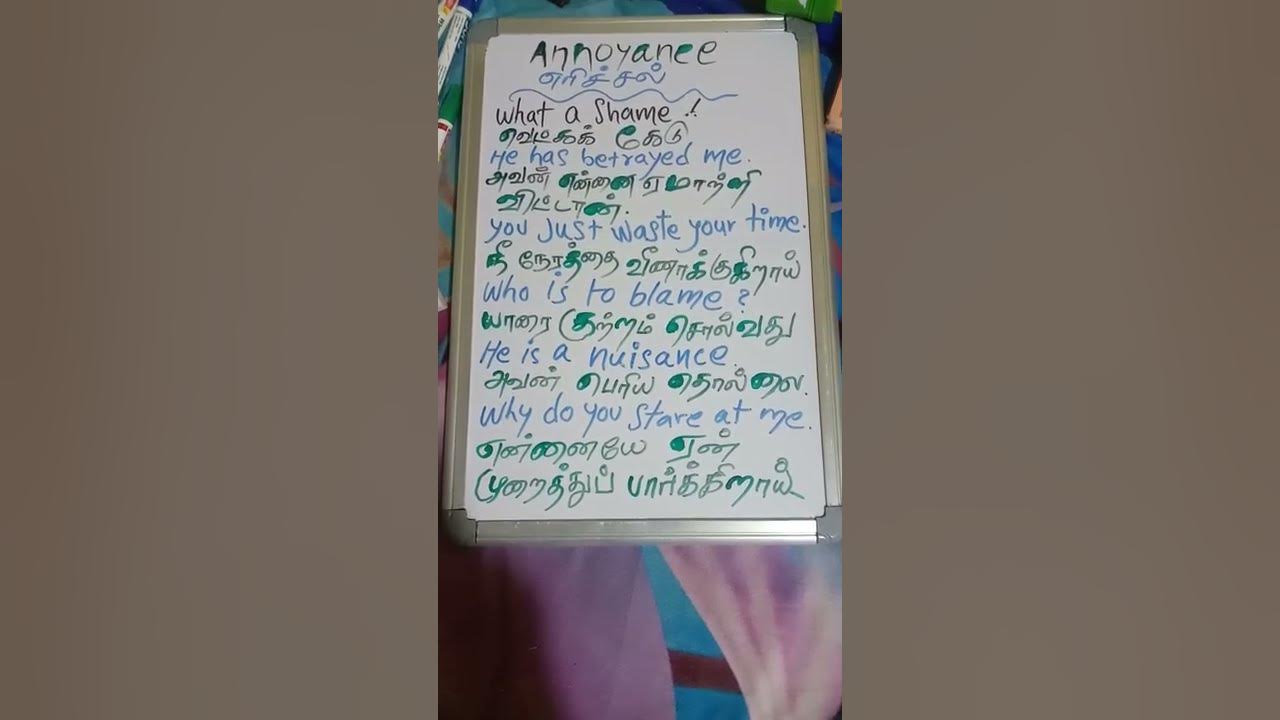 Annoyance
எரிச்சல்
What a Shame !
வெட்கக் கேடு
He has betrayed me.
அவன் என்னை ஏமாற்றி
விட்டான்.
you just waste your time.
நீ நேரத்தை வீணாக்குகிறாய்
Who is to blame ?
யாரை குற்றம் சொல்வது
He is a nuisance.
அவன் பெரிய தொல்லை.
Why do you stare at me.
என்னையே ஏன்
முறைத்துப் பார்க்கிறாய்